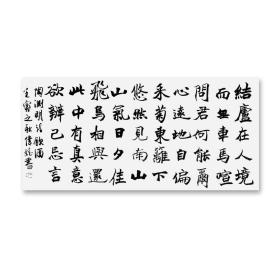 結廬在人境
而無車馬喧
問君何能爾
心遠地自偏
采菊東籬下
悠然見南山
山氣日夕佳
飛鳥相與還
此中有真意
欲辯已忘言
陶淵明詩飲酒